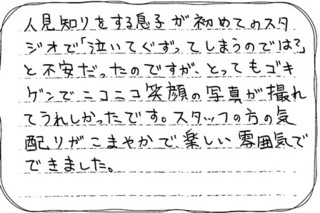 人見知りをする息子が初めてのスタ
ジオで「泣いてぐずってしまうのでは?」
と不安だったのですが、とってもゴキ
ゲンでニコニコ笑顔の写真が撮れ
てうれしかったです。スタッフの方の気
配りがこまやかで、楽しい雰囲気で
できました。